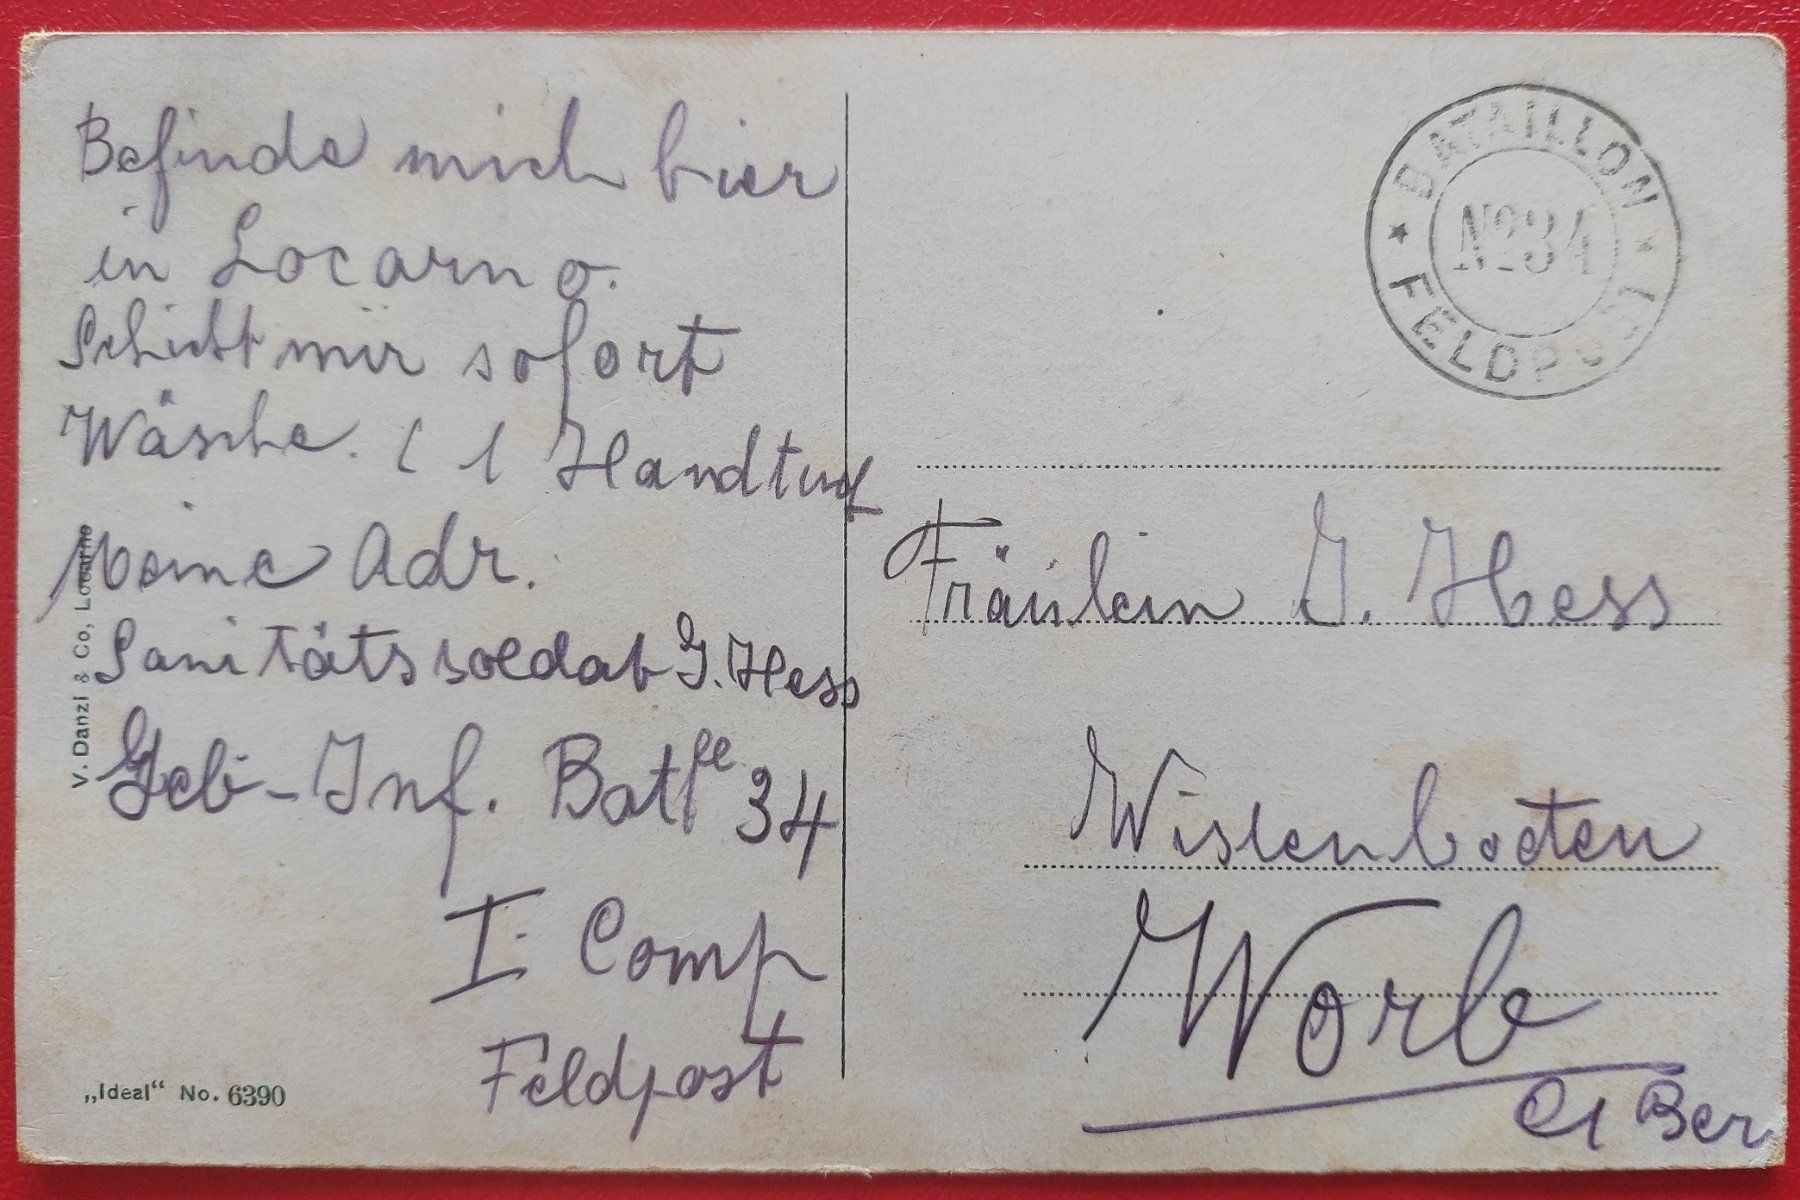 Befinde mich hier
in Locarno.
Schickt mir sofort
Wäsche. ( 1 Handtuch
Meine Adr.
Sanitätssoldat G. Hess
Geb-Inf. Bat 34
I Comp
Feldpost
V. Danzi & Co, Locarno
„Ideal“ No. 6390
BATAILLON
No 34
FELDPOST
Fräulein G. Hess
Wislenboden
Worb
Ct Ber